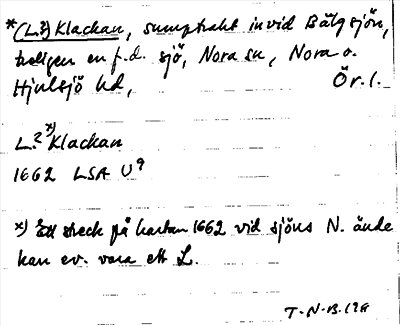 *(L.?) Klackan, sumptrakt invid Bälgsjön,
troligen en f.d. sjö, Nora sn, Nora o.
Hjulsjö hd, Ör. l.
L.? x) Klackan
1662 LSA U9
x) Ett streck på kartan 1662 vid sjöns N. ände
kan ev. vara ett L.
T-N-B.